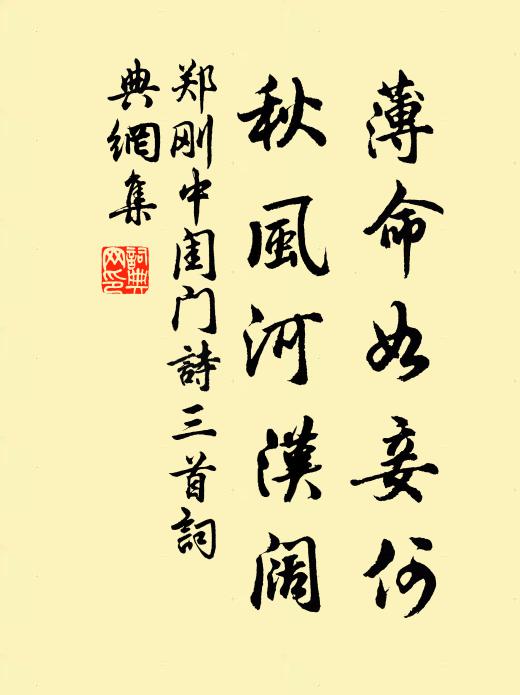 薄命如妾何
秋風河漢阔
郑刚中闺门詩三首詞
典網集
詞典网印